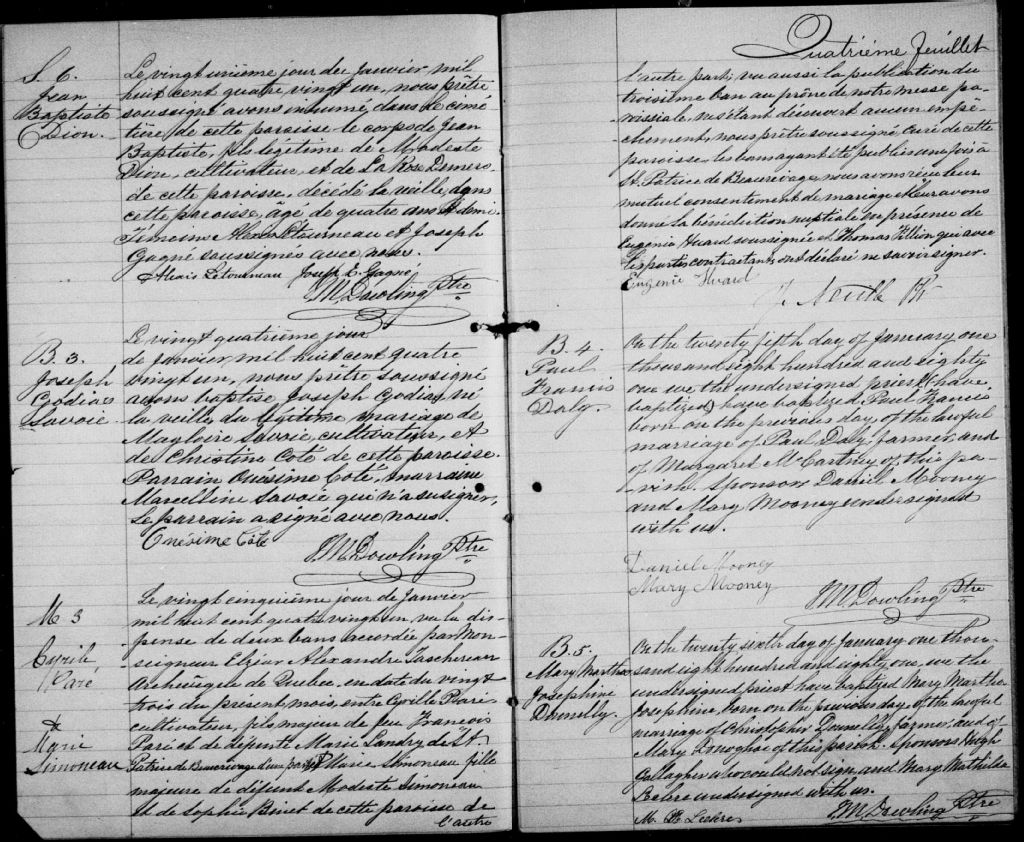 S. 6.
Jean
Baptiste
Dion.
Le vingt unième jour de Janvier mil
huit cent quatre vingt un, nous prêtre
soussigné avons inhumé dans le cime-
tière de cette paroisse le corps de Jean
Baptiste, fils légitime de Modeste
Dion, cultivateur, et de La Rose Demers
de cette paroisse, décédé la veille dans
cette paroisse, âgé de quatre ans et demi.
Témoins Alexis Létourneau et Joseph
Gagné soussignés avec nous.
Alexis Letourneau Joseph E. Gagné
J.M. Dowling Ptre
B. 3.
Joseph
Godias
Savoie
Le vingt quatrième jour
de Janvier mil huit cent quatre
vingt un, nous prêtre soussigné
avons baptisé Joseph Godias né
la veille du légitime mariage de
Magloire Savoie, cultivateur, et
de Christine Coté de cette paroisse.
Parrain Onésime Coté, marraine
Marcelline Savoie qui n'a su signer,
Le parrain a signé avec nous.
Onésime Coté
J.M. Dowling Ptre
M 3
Cyrile
Paré
&
Marie
Simoneau
Le vingt cinquième jour de Janvier
mil huit cent quatre vingt un, vu la dis-
pense de deux bans accordée par Mon-
seigneur Elzéar Alexandre Taschereau
Archevêque de Quebec, en date du vingt
trois du présent mois, entre Cyrille Paré
cultivateur, fils majeur de feu François
Paré et de défunte Marie Landry de St.
Patrice de Beaurivage d'une part et Marie Simoneau fille
majeure de défunt Modeste Simoneau
et de Sophie Binet de cette paroisse de
l'autre
Quatrième feuillet
l'autre part; vu aussi la publication du
troisième ban au prône de notre messe pa-
roissiale, n'étant découvert aucun empê-
chement, nous prêtre soussigné, curé de cette
paroisse, les bans ayant été publiés une fois à
St. Patrice de Beaurivage, nous avons reçu leur
mutuel consentement de mariage et leur avons
donné la bénédiction nuptiale en présence de
Eugenie Huard soussignée et Thomas Fillion qui avec
les parties contractantes ont déclaré ne savoir signer.
Eugenie Huard
J. Neville Ptr
B. 4.
Paul
Francis
Daly.
On the twenty fifth day of January one
thousand eight hundred and eighty
one we the undersigned priest (have
baptized) have baptized Paul Francis
born on the previous day, of the lawful
marriage of Paul Daly, farmer and
of Margaret McCartney of this pa-
rish. Sponsors Daniel Mooney
and Mary Mooney undersigned
with us.
Daniel Mooney
Mary Mooney
J.M. Dowling Ptre
B. 5.
Mary Martha
Josephine
Donnelly.
On the twenty sixth day of January one thou-
sand eight hundred and eighty one, we the
undersigned priest have baptized Mary Martha
Josephine, born on the previous day, of the lawful
marriage of Christopher Donnelly, farmer, and of
Mary Donoghoe of this parish. Sponsors Hugh
Gallagher who could not sign, and Mary Mathilda
undersigned with us.
J.M. Dowling Ptre